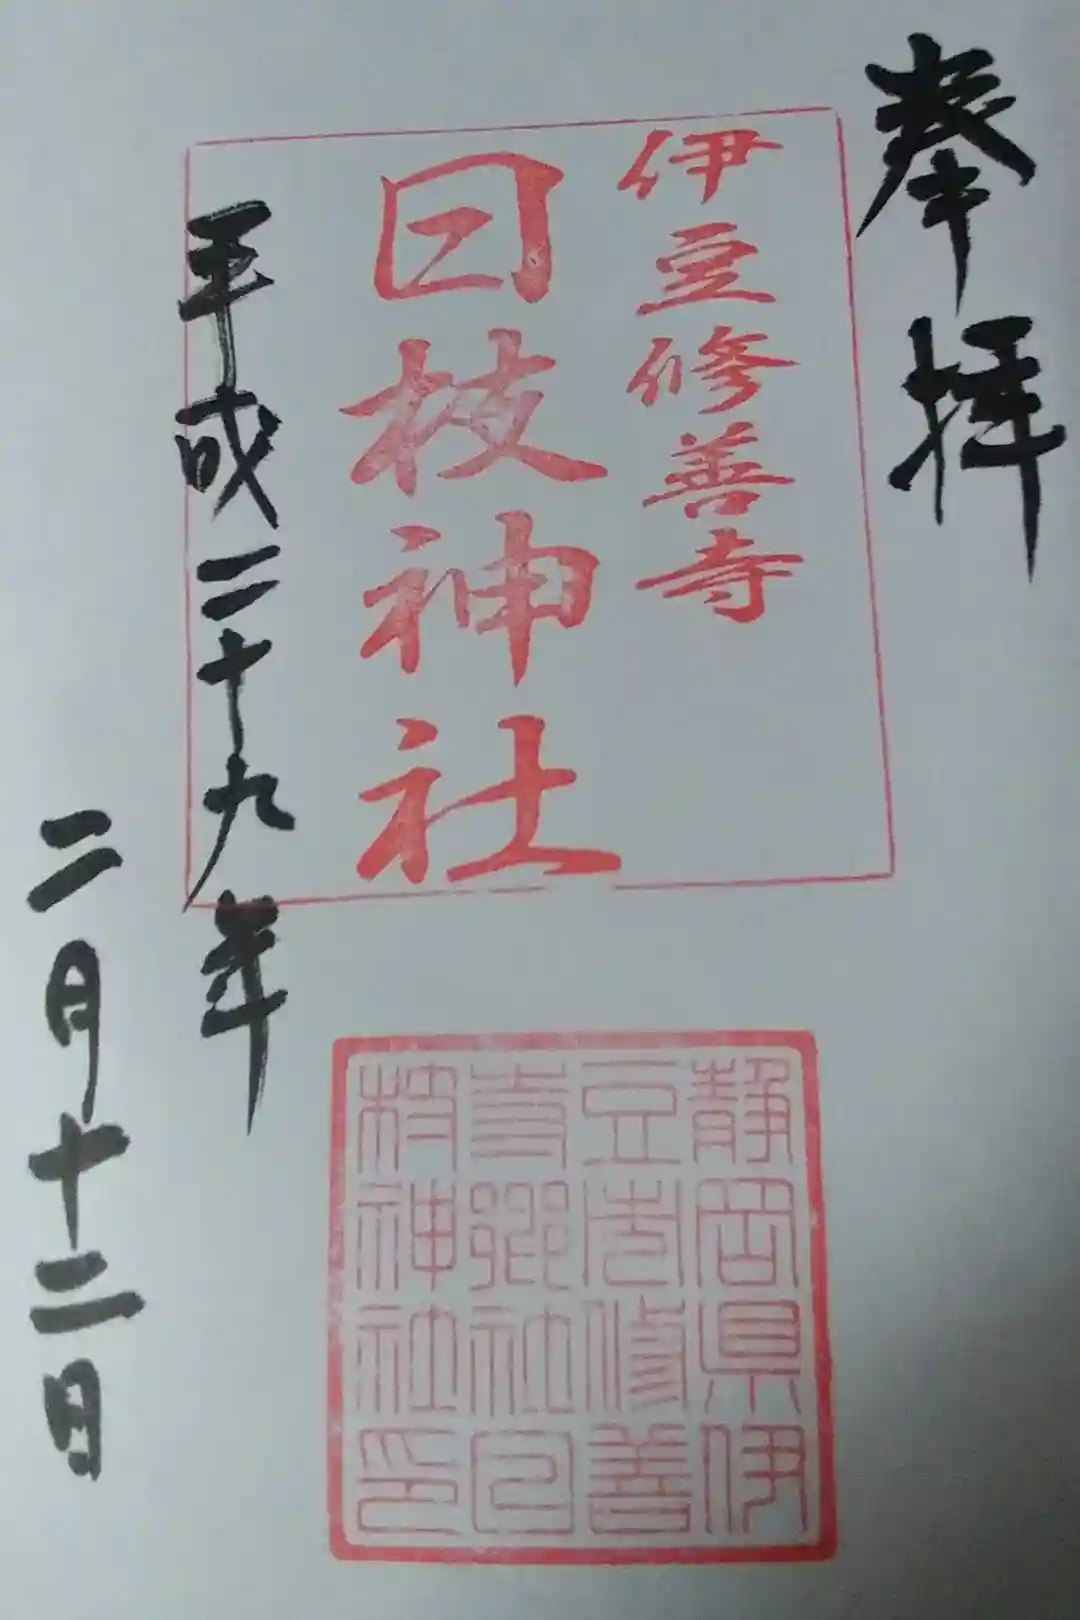 奉拝
伊豆修善寺
日枝神社
平成二十九年
二月十二日
静岡県伊
豆市修善
寺郷社日
枝神社印